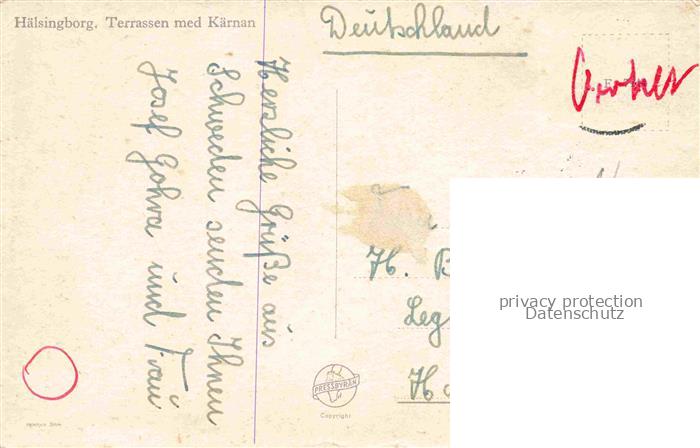 Hälsingborg. Terrassen med Kärnan
Deutschland
Herzliche Grüße aus
Schweden senden Ihnen
Josef Gohra und Frau
H. B
Leg
H
PRESSBYRÅN
Copyright
privacy protection
Datenschutz